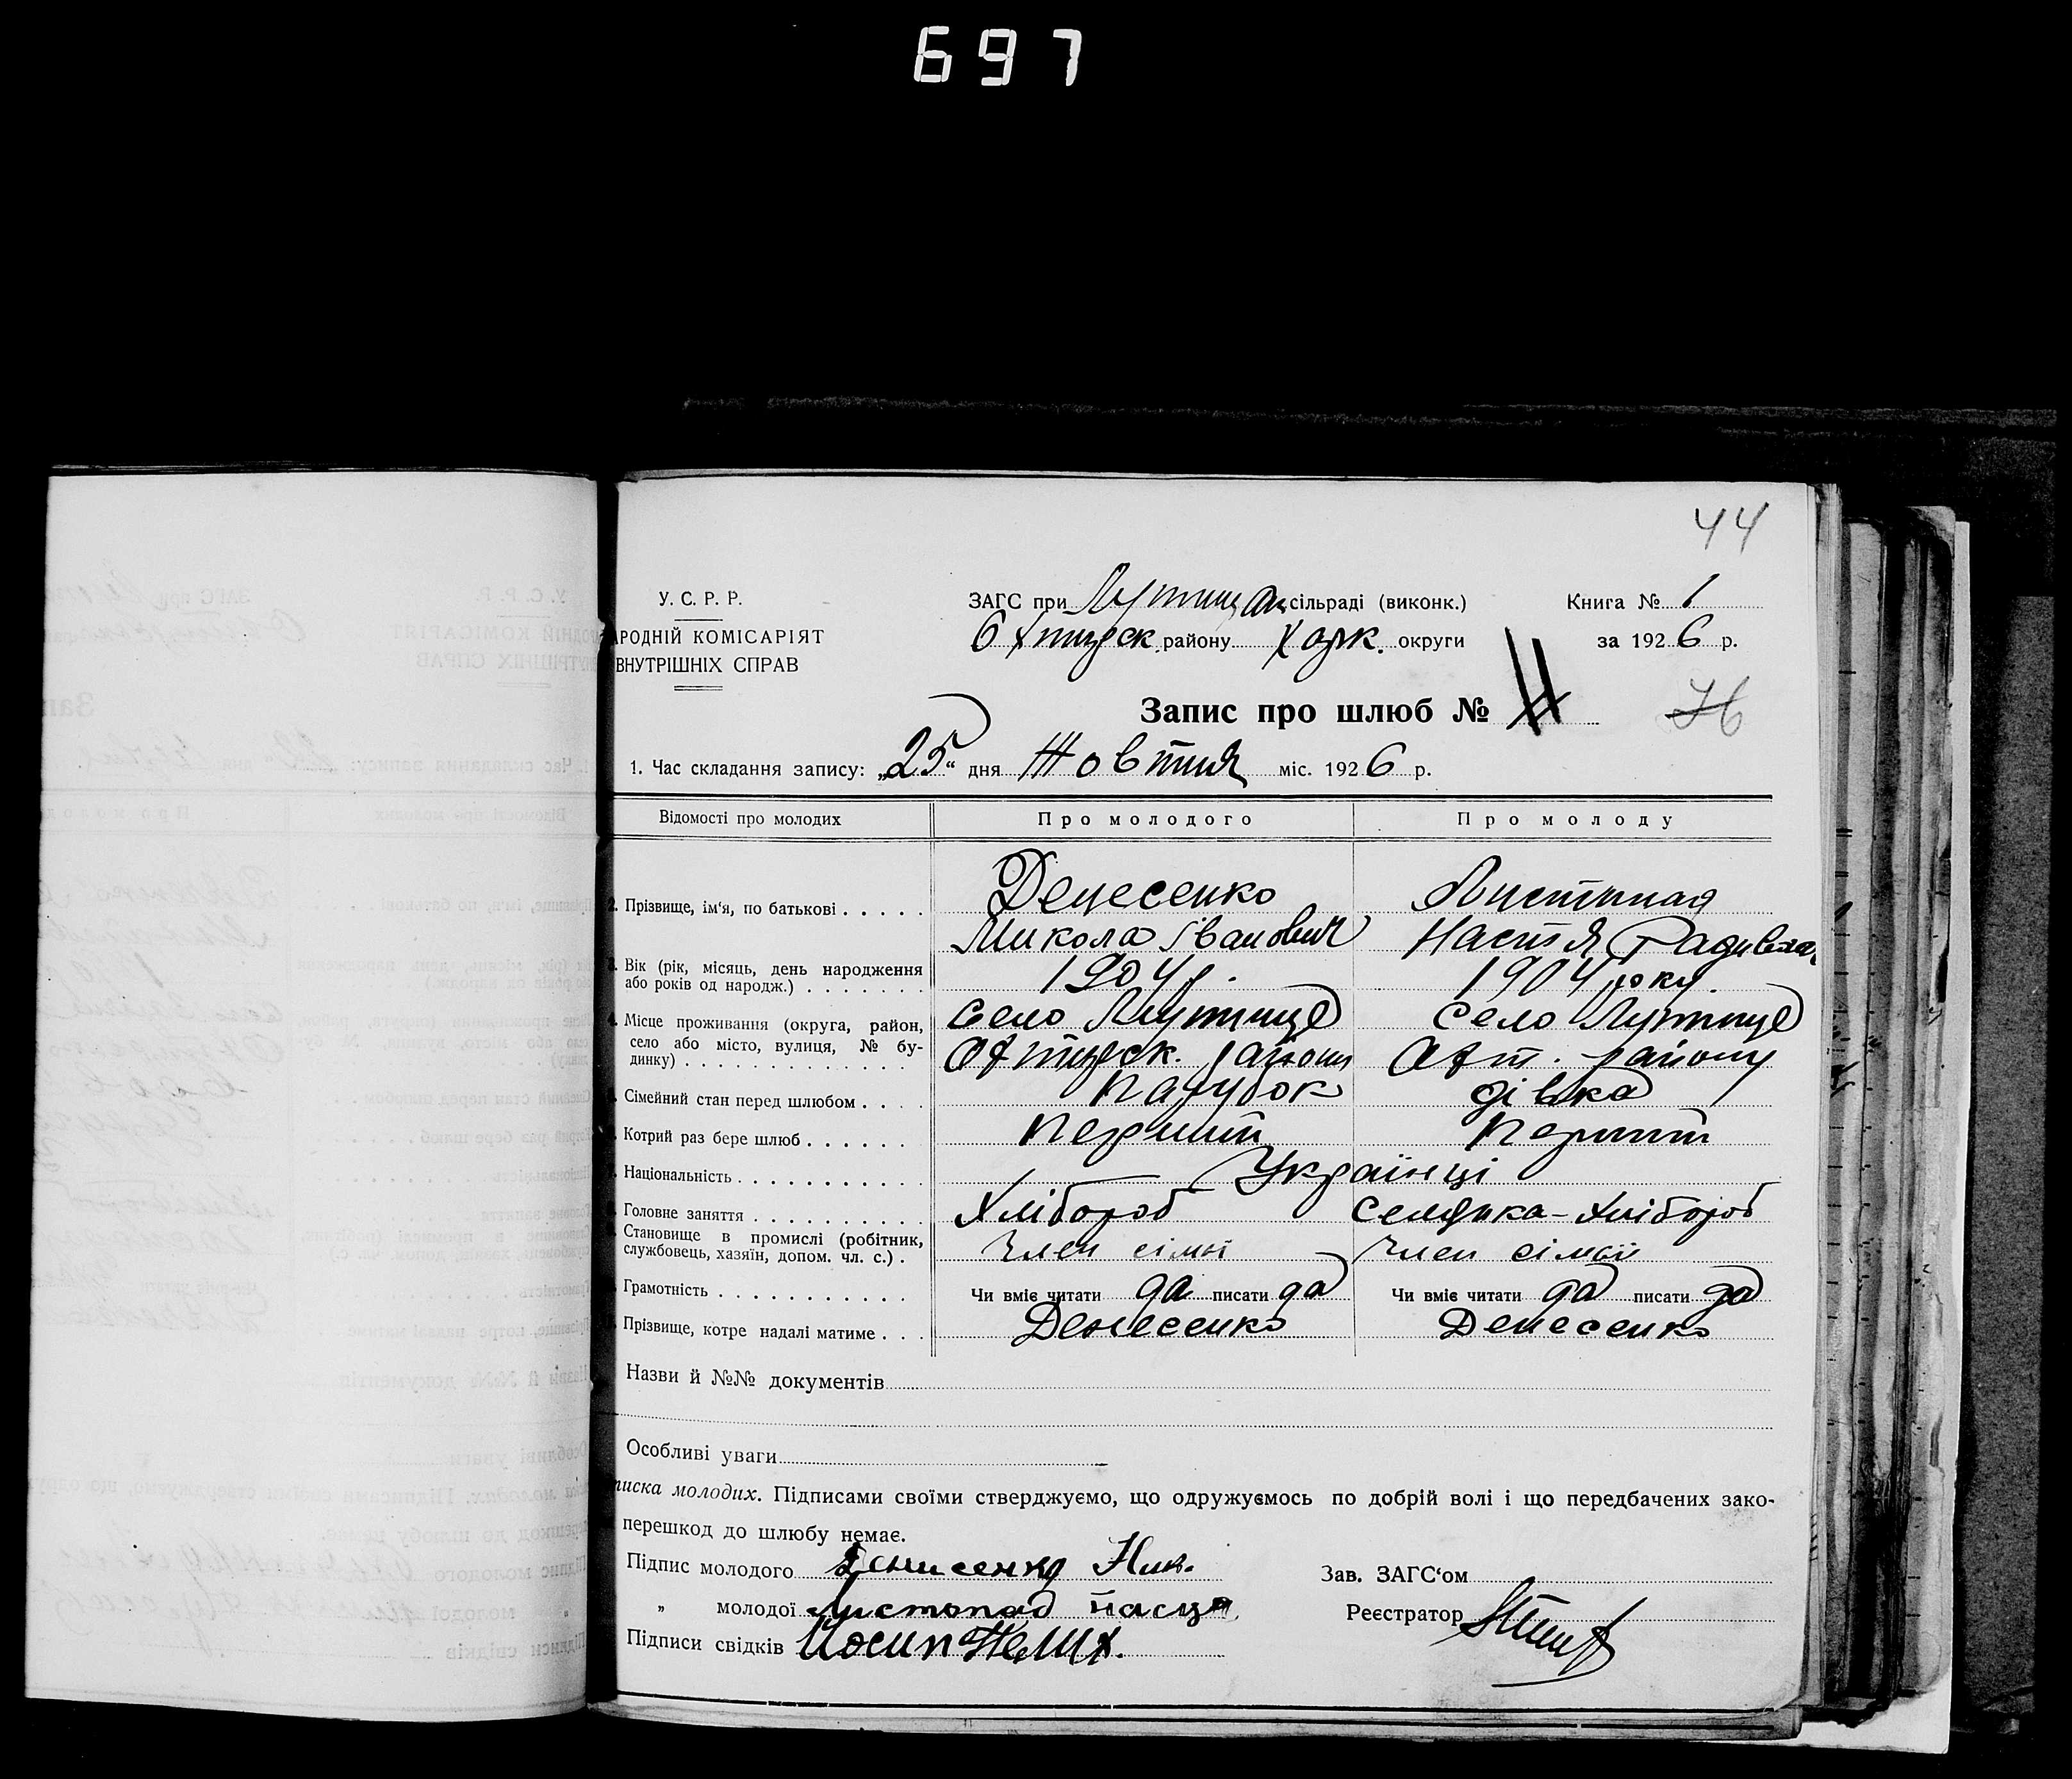 697
44
У. С. Р. Р.
РОДНІЙ КОМІСАРІЯТ
ВНУТРІШНІХ СПРАВ
ЗАГС при Лутищан сільраді (виконк.)
Охтирск. району Харк. округи
Книга № 1
за 1926 р.
Запис про шлюб №
1. Час складання запису: „25“ дня Жовтня міс. 1926 р.
Відомості про молодих Про молодого Про молоду
2. Прізвище, ім‘я, по батькові Денесенко Листопная
Микола Іванович Настя
Вік (рік, місяць, день народження або років од народж.) 1904 р. 1904 року
Місце проживання (округа, район, село або місто, вулиця, № будинку) Село Лутище Село Лутище
Охтирск. району Охт. району
Сімейний стан перед шлюбом Парубок дівка
Котрий раз бере шлюб Перший Перший
Національність Українці
Головне заняття Хлібороб Селянка-хлібороб
Становище в промислі (робітник, службовець, хазяїн, допом. чл. с.) Член сімї Член сімї
Грамотність Чи вміє читати да писати да Чи вміє читати да писати да
Прізвище, котре надалі матиме Денесенко Денесенко
Назви й №№ документів
Особливі уваги
писка молодих. Підписами своїми стверджуємо, що одружуємось по добрій волі і що передбачених зако-
перешкод до шлюбу немає.
Підпис молодого Денисенко Ник.
„ молодої Листопад
Підписи свідків Йосип
Зав. ЗАГС‘ом
Реєстратор